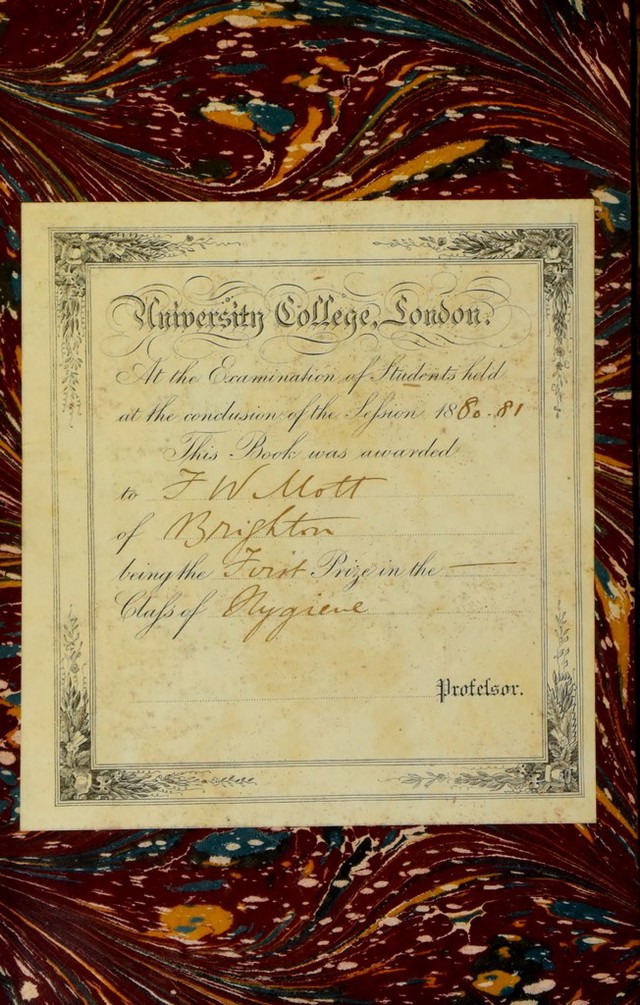 University College, London.
At the Examination of Students held
at the conclusion of the Seſsion 1880-81
This Book was awarded
to F W Mott
of Brighton
being the First Prize in the —
Claſs of Hygiene
Profeſsor.